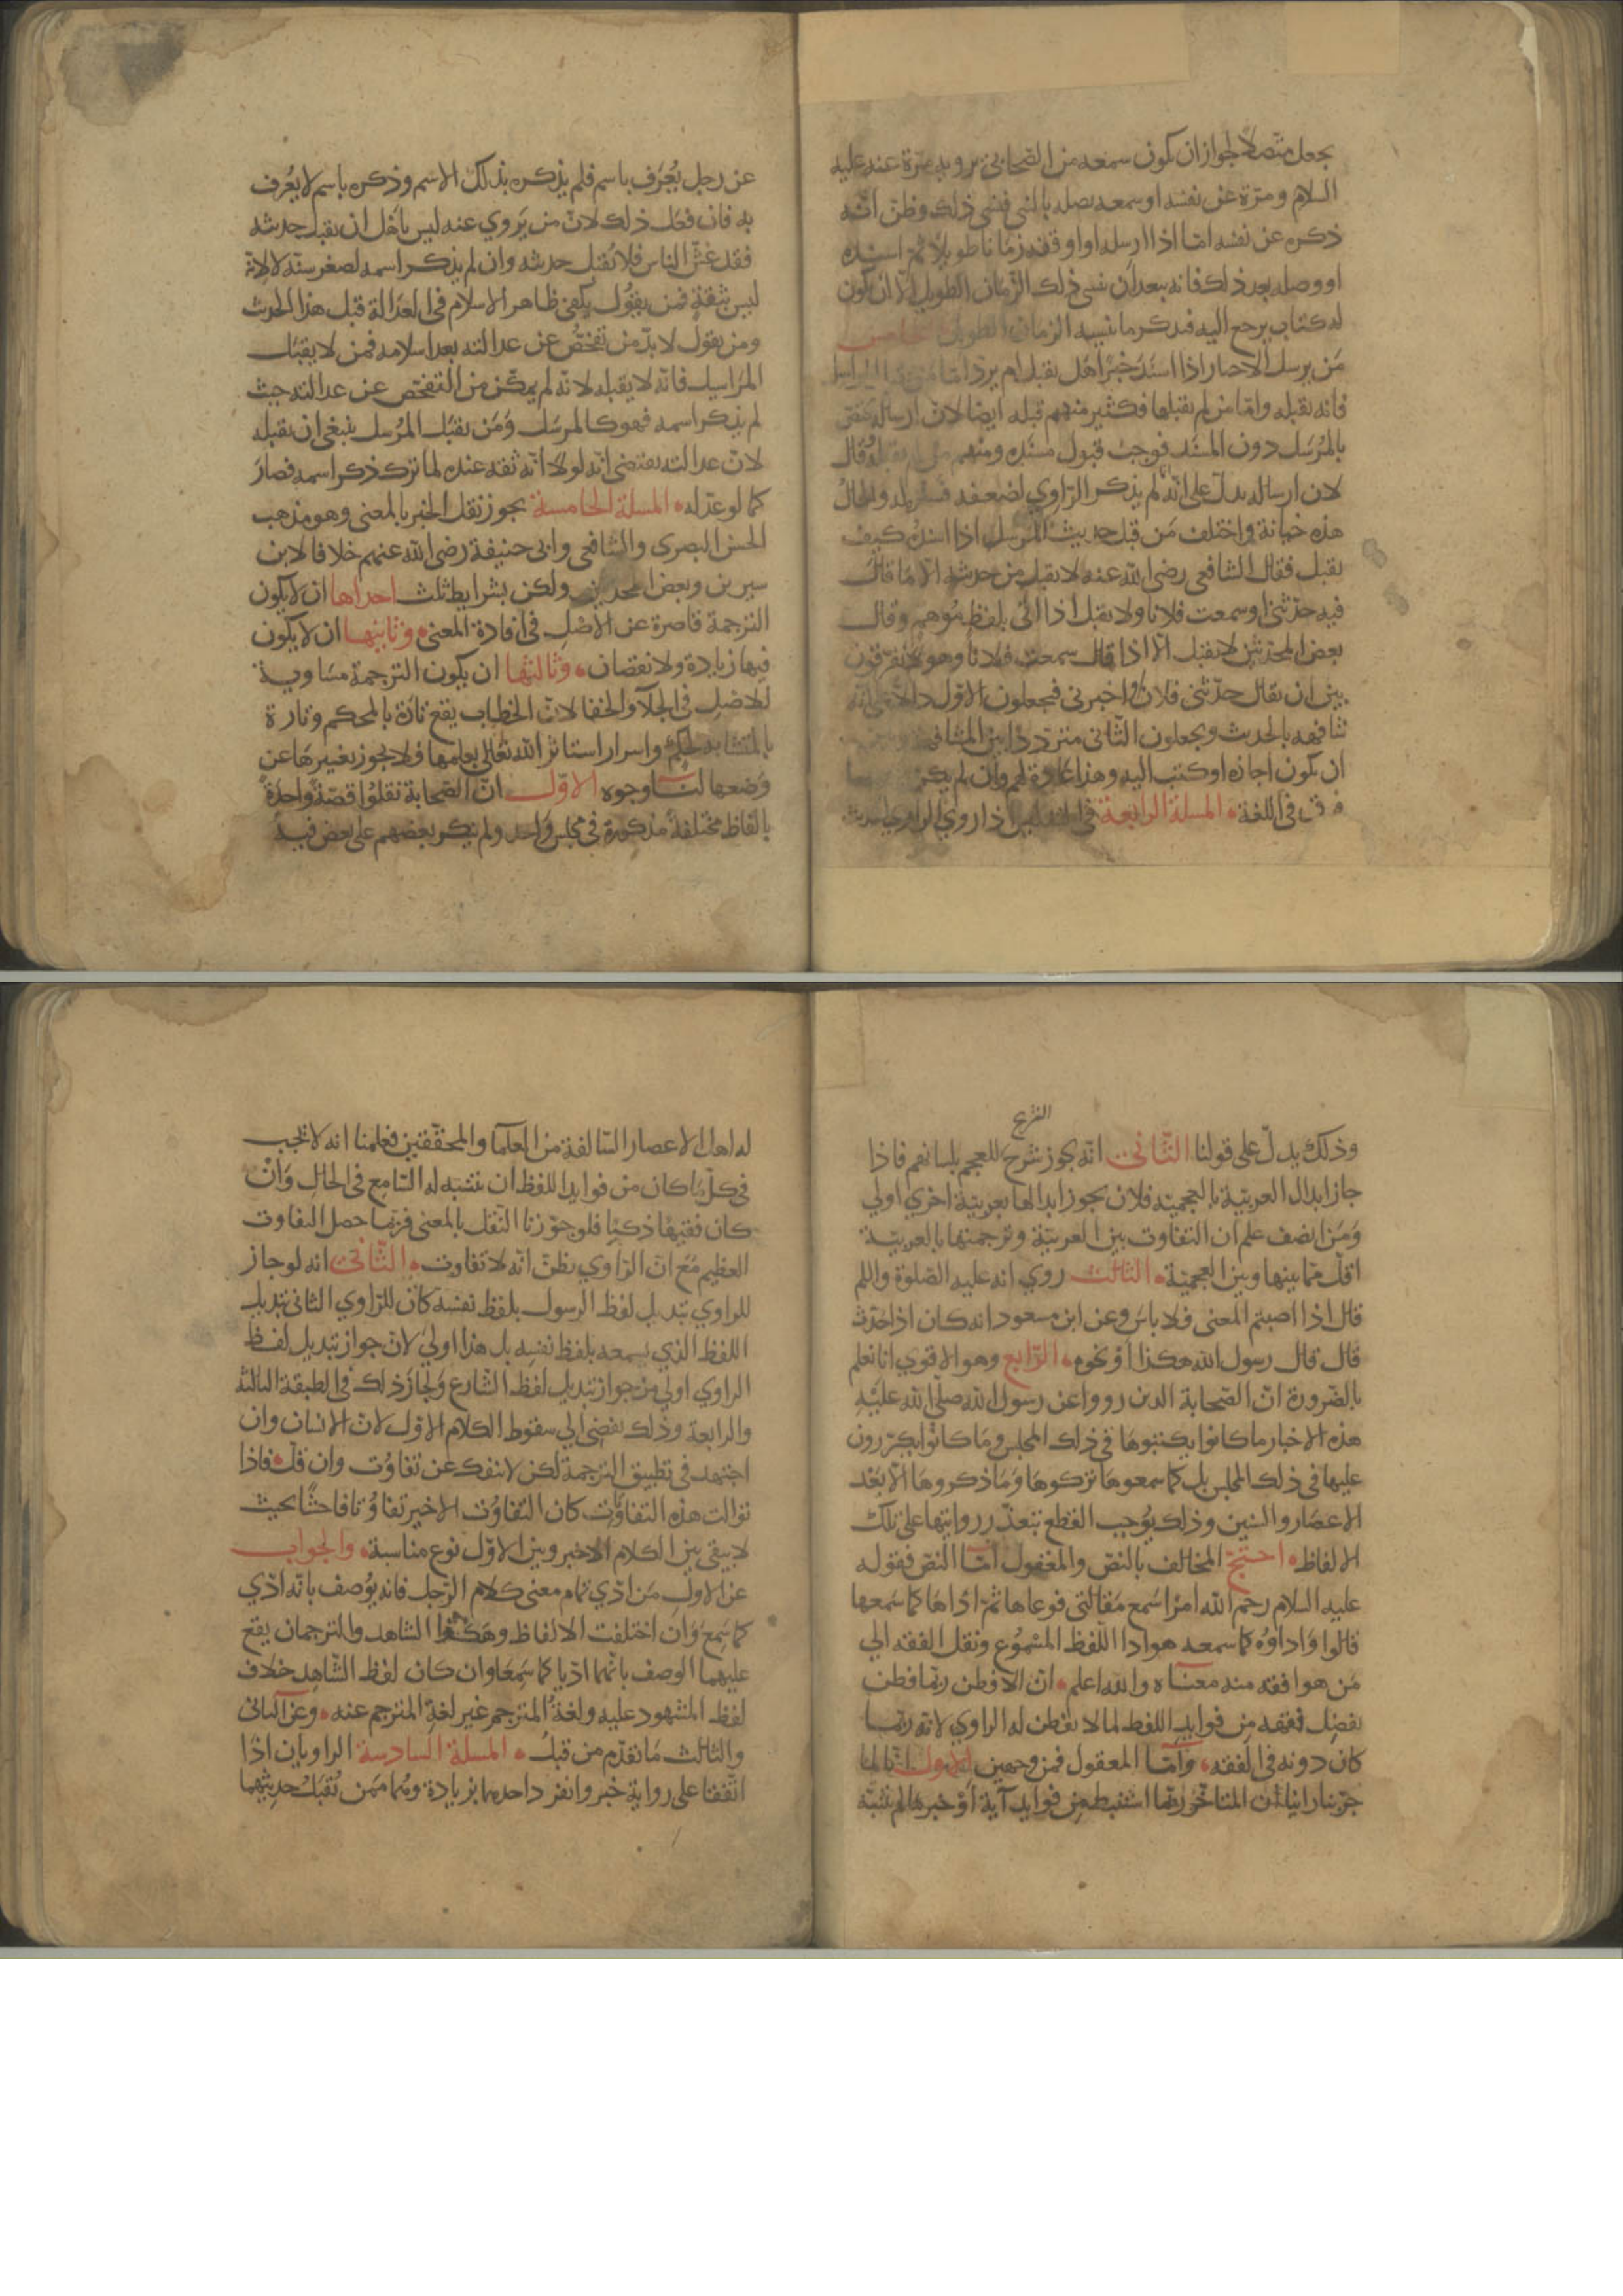 يجعل متصلا لجواز ان يكون سمعه من الصحابي يرويه مرة عنه عليه
السلام ومرة عن نفسه او سمعه يصله بالنبي فنسي ذلك وظن انه
ذكره عن نفسه اما اذا ارسله او اوقفه زمانا طويلا ثم اسنده
او وصله بعد ذلك فانه يبعد ان ينسى ذلك الزمان الطويل الا ان يكون
له كتاب يرجع اليه فيذكر ما نسيه الزمان الطويل
من يرسل الاخبار اذا اسند خبرا هل يقبل ام يرد اما من
فانه يقبله واما من لم يقبلها فكثير منهم قبله ايضا لان ارساله يختص
بالمرسل دون المسند فوجب قبول مسنده ومنهم من لم يقبله وقال
لان ارساله يدل على انه لم يذكر الراوي لضعفه فستره له والحال
هذه خيانة واختلف من قبل حديث المرسل اذا اسنده كيف
يقبل فقال الشافعي رضي الله عنه لا يقبل من حديثه الا ما قال
فيه حدثني او سمعت فلانا ولا يقبل اذا اتى بلفظ موهم وقال
بعض المحدثين لا يقبل الا اذا قال سمعت فلانا وهولا يفرقون
بين ان يقال حدثني فلان واخبرني فيجعلون الاول دالا على انه
شافهه بالحديث ويجعلون الثاني مترددا بين المشافهة وبين
ان يكون اجازه او كتب اليه وهذا عادة لهم وان لم يكن
فرق في اللغة المسلة الرابعة في التدليس اذا روى الراوي الحديث
عن رجل يعرف باسم فلم يذكره بذلك الاسم وذكره باسم لا يعرف
به فان فعل ذلك لان من يروي عنه ليس باهل ان يقبل حديثه
فقد غش الناس فلا يقبل حديثه وان لم يذكر اسمه لصغر سنه لا لانه
ليس بثقة فمن يقول يكفي ظاهر الاسلام في العدالة قبل هذا الحديث
ومن يقول لا بد من تفحص عن عدالته بعد اسلامه فمن لا يقبل
المراسيل فانه لا يقبله لانه لم يمكن من التفحص عن عدالته حيث
لم يذكر اسمه فهو كالمرسل ومن يقبل المرسل ينبغي ان يقبله
لان عدالته يقتضي انه لولا انه ثقة عنده لما ترك ذكر اسمه فصار
كما لو عدله المسلة الخامسة يجوز نقل الخبر بالمعنى وهو مذهب
الحسن البصري والشافعي وابي حنيفة رضي الله عنهم خلافا لابن
سيرين وبعض المحدثين ولكن بشرايط ثلث احداها ان لا يكون
الترجمة قاصرة عن الاصل في افادة المعنى وثانيها ان لا يكون
فيها زيادة ولا نقصان وثالثها ان يكون الترجمة مساوية
للاصل في الجلا والخفا لان الخطاب يقع تارة بالمحكم وتارة
بالمتشابه لحكم واسرار استاثر الله تعالى بعلمها فلا يجوز تغييرها عن
وضعها لنا وجوه الاول ان الصحابة نقلوا قصة واحدة
بالفاظ مختلفة مذكورة في مجلس واحد ولم ينكر بعضهم على بعض فيه
الشرع
وذلك يدل على قولنا الثاني انه يجوز شرح للعجم بلسانهم فاذا
جاز ابدال العربية بالعجمية فلان يجوز ابدالها بعربية اخرى اولى
ومن انصف علم ان التفاوت بين العربية وترجمتها بالعربية
اقل مما بينها وبين العجمية الثالث روي انه عليه الصلوة والسلم
قال اذا اصبتم المعنى فلا باس وعن ابن مسعود انه كان اذا حدث
قال قال رسول الله هكذا او نحوه الرابع وهو الاقوي انا نعلم
بالضرورة ان الصحابة الذين رووا عن رسول الله صلى الله عليه
هذه الاخبار ما كانوا يكتبوها في ذلك المجلس وما كانوا يكررون
عليها في ذلك المجلس بل كما سمعوها تركوها وما ذكروها الا بعد
الاعصار والسنين وذلك يوجب القطع بتعذر روايتها على تلك
الالفاظ احتج المخالف بالنص والمعقول اما النص فقوله
عليه السلام رحم الله امرا سمع مقالتي فوعاها ثم اداها كما سمعها
قالوا واداوه كما سمعه هو ادا اللفظ المسموع ونقل الفقه الي
من هو افقه منه معناه والله اعلم ان الافطن ربما فطن
بفضل فقهه من فوايد اللفظ لما لا يفطن له الراوي لانه ربما
كان دونه في الفقه واما المعقول فمن وجهين الاول انا لما
جربنا راينا ان المتاخر ربما استنبط من فوايد آية او خبر ما لم يتنبه
له اهل الاعصار السالفة من العلما والمحققين فعلمنا انه لا يجب
في كل ما كان من فوايد اللفظ ان يتنبه له السامع في الحال وان
كان فقيها ذكيا فلو جوزنا النقل بالمعنى فربما حصل التفاوت
العظيم مع ان الراوي يظن انه لا تفاوت الثاني انه لو جاز
للراوي تبديل لفظ الرسول بلفظ نفسه كان للراوي الثاني تبديل
اللفظ الذي سمعه بلفظ نفسه بل هذا اولى لان جواز تبديل لفظ
الراوي اولى من جواز تبديل لفظ الشارع ولجاز ذلك في الطبقة الثالثة
والرابعة وذلك يفضي الي سقوط الكلام الاول لان الانسان وان
اجتهد في تطبيق الترجمة لكن لا ينفك عن تفاوت وان قل فاذا
توالت هذه التفاوتات كان التفاوت الاخير تفاوتا فاحشا بحيث
لا يبقى بين الكلام الاخير وبين الاول نوع مناسبة والجواب
عن الاول من ادي تمام معنى كلام الرجل فانه يوصف بانه ادي
كما سمع وان اختلفت الالفاظ وهكذا الشاهد والترجمان يقع
عليهما الوصف بانهما اديا كما سمعا وان كان لفظ الشاهد خلاف
لفظ المشهود عليه ولغة المترجم غير لغة المترجم عنه وعن الثاني
والثالث ما تقدم من قبل المسلة السادسة الراويان اذا
اتفقا على رواية خبر وانفرد احدهما بزيادة وهما ممن تقبل حديثهما